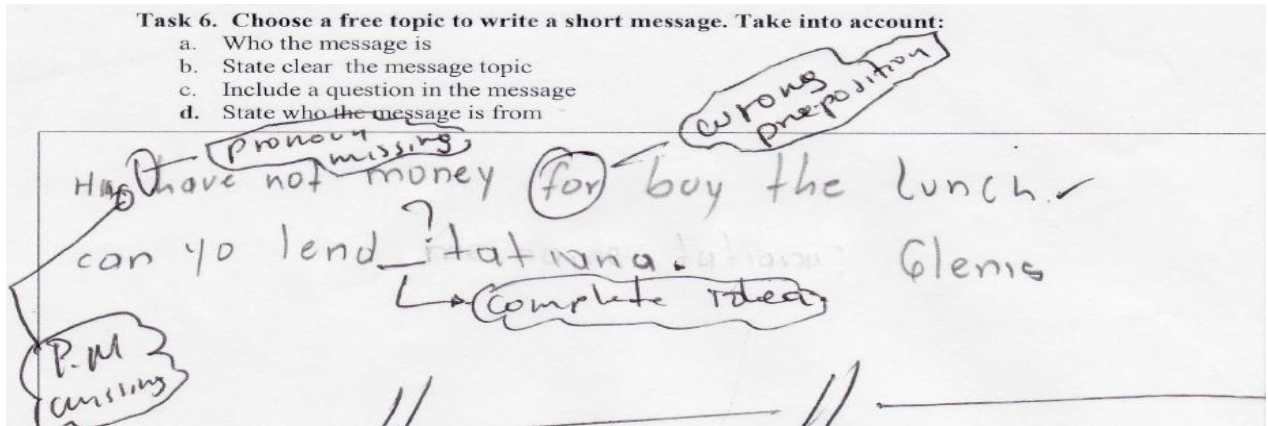 Task 6. Choose a free topic to write a short message. Take into account:
a. Who the message is
b. State clear the message topic
c. Include a question in the message
d. State who the message is from
wrong
preposition
pronoun
missing
have not money for buy the lunch.
?
can yo lend tatiana. Glenis
complete idea
P.M
missing